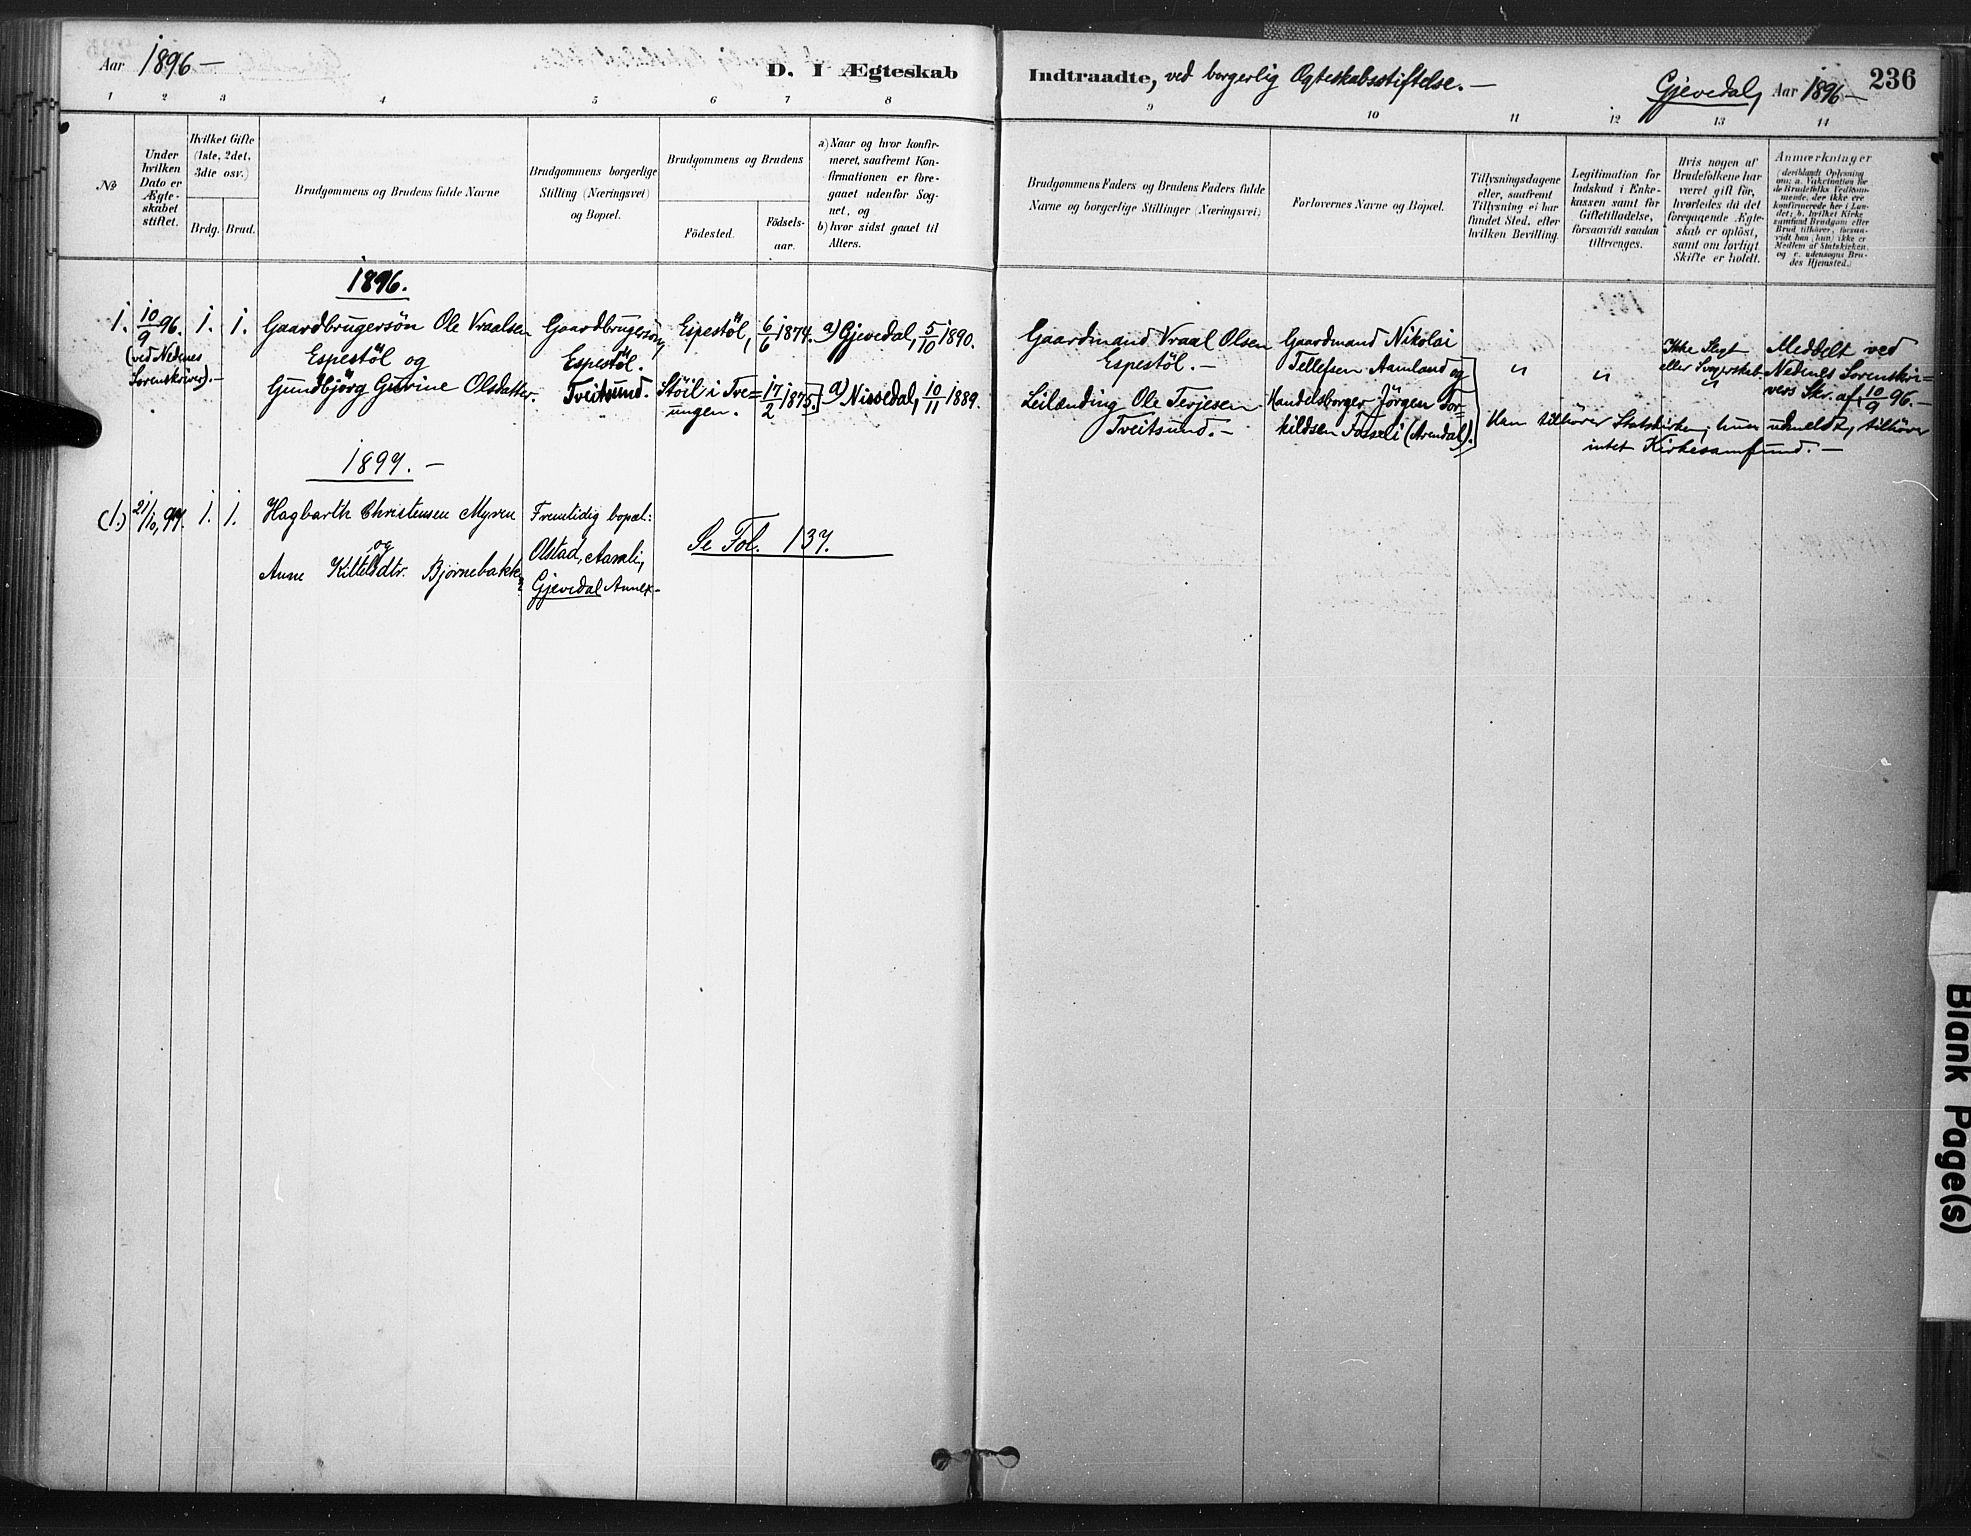 Aar 1896 —
D. I Ægteskab
Indtraadte, ved borgerlig Ægteskabsstiftelse. —
Gjevedal, Aar 1896 — 236
1 2 3 4 5 6 7 8
9 10 11 12 13 14
№
Under
hvilken
Dato er
Ægte-
skabet
stiftet.
Hvilket Gifte
(1ste, 2det,
3die osv.)
Brdg. Brud.
Brudgommens og Brudens fulde Navne
Brudgommens borgerlige
Stilling (Næringsvei)
og Bopæl.
Brudgommens og Brudens
Födested.
Födsels-
aar.
a) Naar og hvor konfir-
meret, saafremt Kon-
firmationen er fore-
gaaet udenfor Sog-
net, og
b) hvor sidst gaaet til
Alters.
Brudgommens Faders og Brudens Faders fulde
Navne og borgerlige Stillinger (Næringsvei)
Forlovernes Navne og Bopæl.
Tillysningsdagene
eller, saafremt
Tillysning ei har
fundet Sted, efter
hvilken Bevilling.
Legitimation for
Indskud i Enke-
kassen samt for
Giftetilladelse,
forsaavidt saadan
tiltrænges.
Hvis nogen af
Brudefolkene har
været gift för,
hvorledes da det
foregaaende Ægte-
skab er oplöst,
samt om lovligt
Skifte er holdt.
Anmærkninger
(deriblandt Oplysning
om: a. Vakcination for
de Brudefolks Vedkom-
mende, der ikke ere
konfirmerede her i Lan-
det; b. hvilket Kirke-
samfund Brudgom eller
Brud tilhörer, forsaa-
vidt han (hun) ikke er
Medlem af Statskirken,
og c. udensogns Bru-
des Hjemsted.)
1896.
1. 10/9 96. 1. 1. Gaardbrugersön Ole Vraalsen Gaardbrugersön, Espestöl, 6/6 1874. a) Gjevedal, 5/10 1890.
(ved Nedenes Espestöl og Espestöl.
Sorenskriver). — Gundbjörg Gurine Olsdatter. Tveitsund. Stöil i Tve= 17/2 1875. a) Nissedal, 10/11 1889.
ungen.
Gaardmand Vraal Olsen Gaardmand Nikolai Ikke Slegt Meddelt ved
Espestöl. — Tellefsen Aamland og " " eller Svogerskab. Nedenes Sorenskri=
Leilænding Ole Terjesen Handelsborger Jörgen Tor= " vers Skr. af 10/9 96. —
Tveitsund. — kildsen Fosseli (Arendal). Han tilhörer Statskirken; hun udmeldt, tilhörer
intet Kirkesamfund. —
1897. —
(1.) 21/10, 97. 1. 1. Hagbarth Christensen Myren Fremtidig bopæl:
og Olstad, Aamli, Se Fol. 137.
Anne Kittelsdtr. Bjørnebakke Gjevedal Annex —
Blank Page(s)